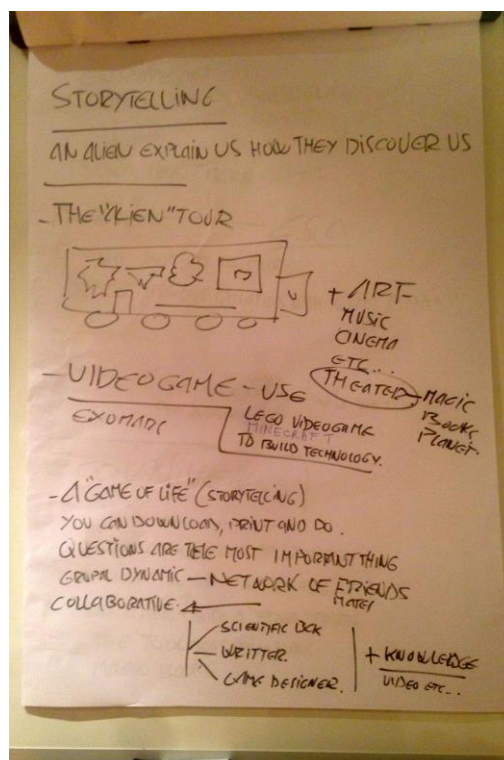 STORYTELLING
AN ALIEN EXPLAIN US HOW THEY DISCOVER US
- THE "ALIEN" TOUR
+ ART
MUSIC
CINEMA
ETC...
THEATER - MAGIC
BOOKS
PLANET.
- VIDEOGAME - USE
LEGO VIDEOGAME
MINECRAFT
TO BUILD TECHNOLOGY.
- A "GAME OF LIFE" (STORYTELLING)
YOU CAN DOWNLOAD, PRINT AND DO.
QUESTIONS ARE THE MOST IMPORTANT THING
GRUPAL DYNAMIC - NETWORK OF FRIENDS
COLLABORATIVE.
SCIENTIFIC
WRITTER.
GAME DESIGNER.
+ KNOWLEDGE
VIDEO ETC...